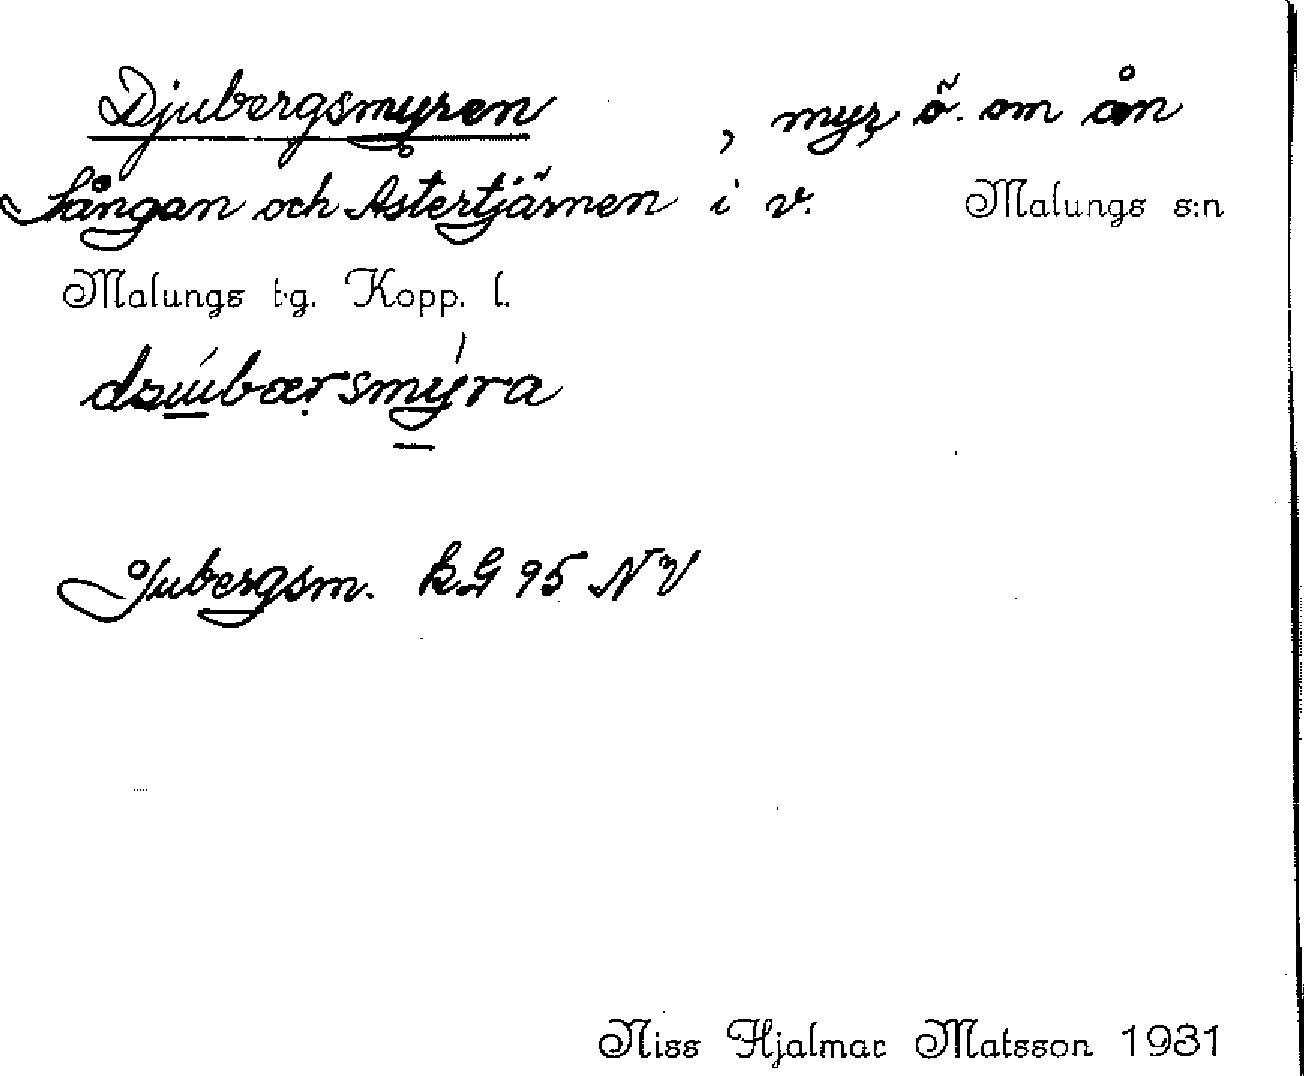 Djubergsmyren, myr ö. om ån
Sångan och Åstertjärnen i v. Malungs s:n
Malungs t.g. Kopp. l.
Jubergsm. kG 95 NV
Niss Hjalmar Matsson 1931